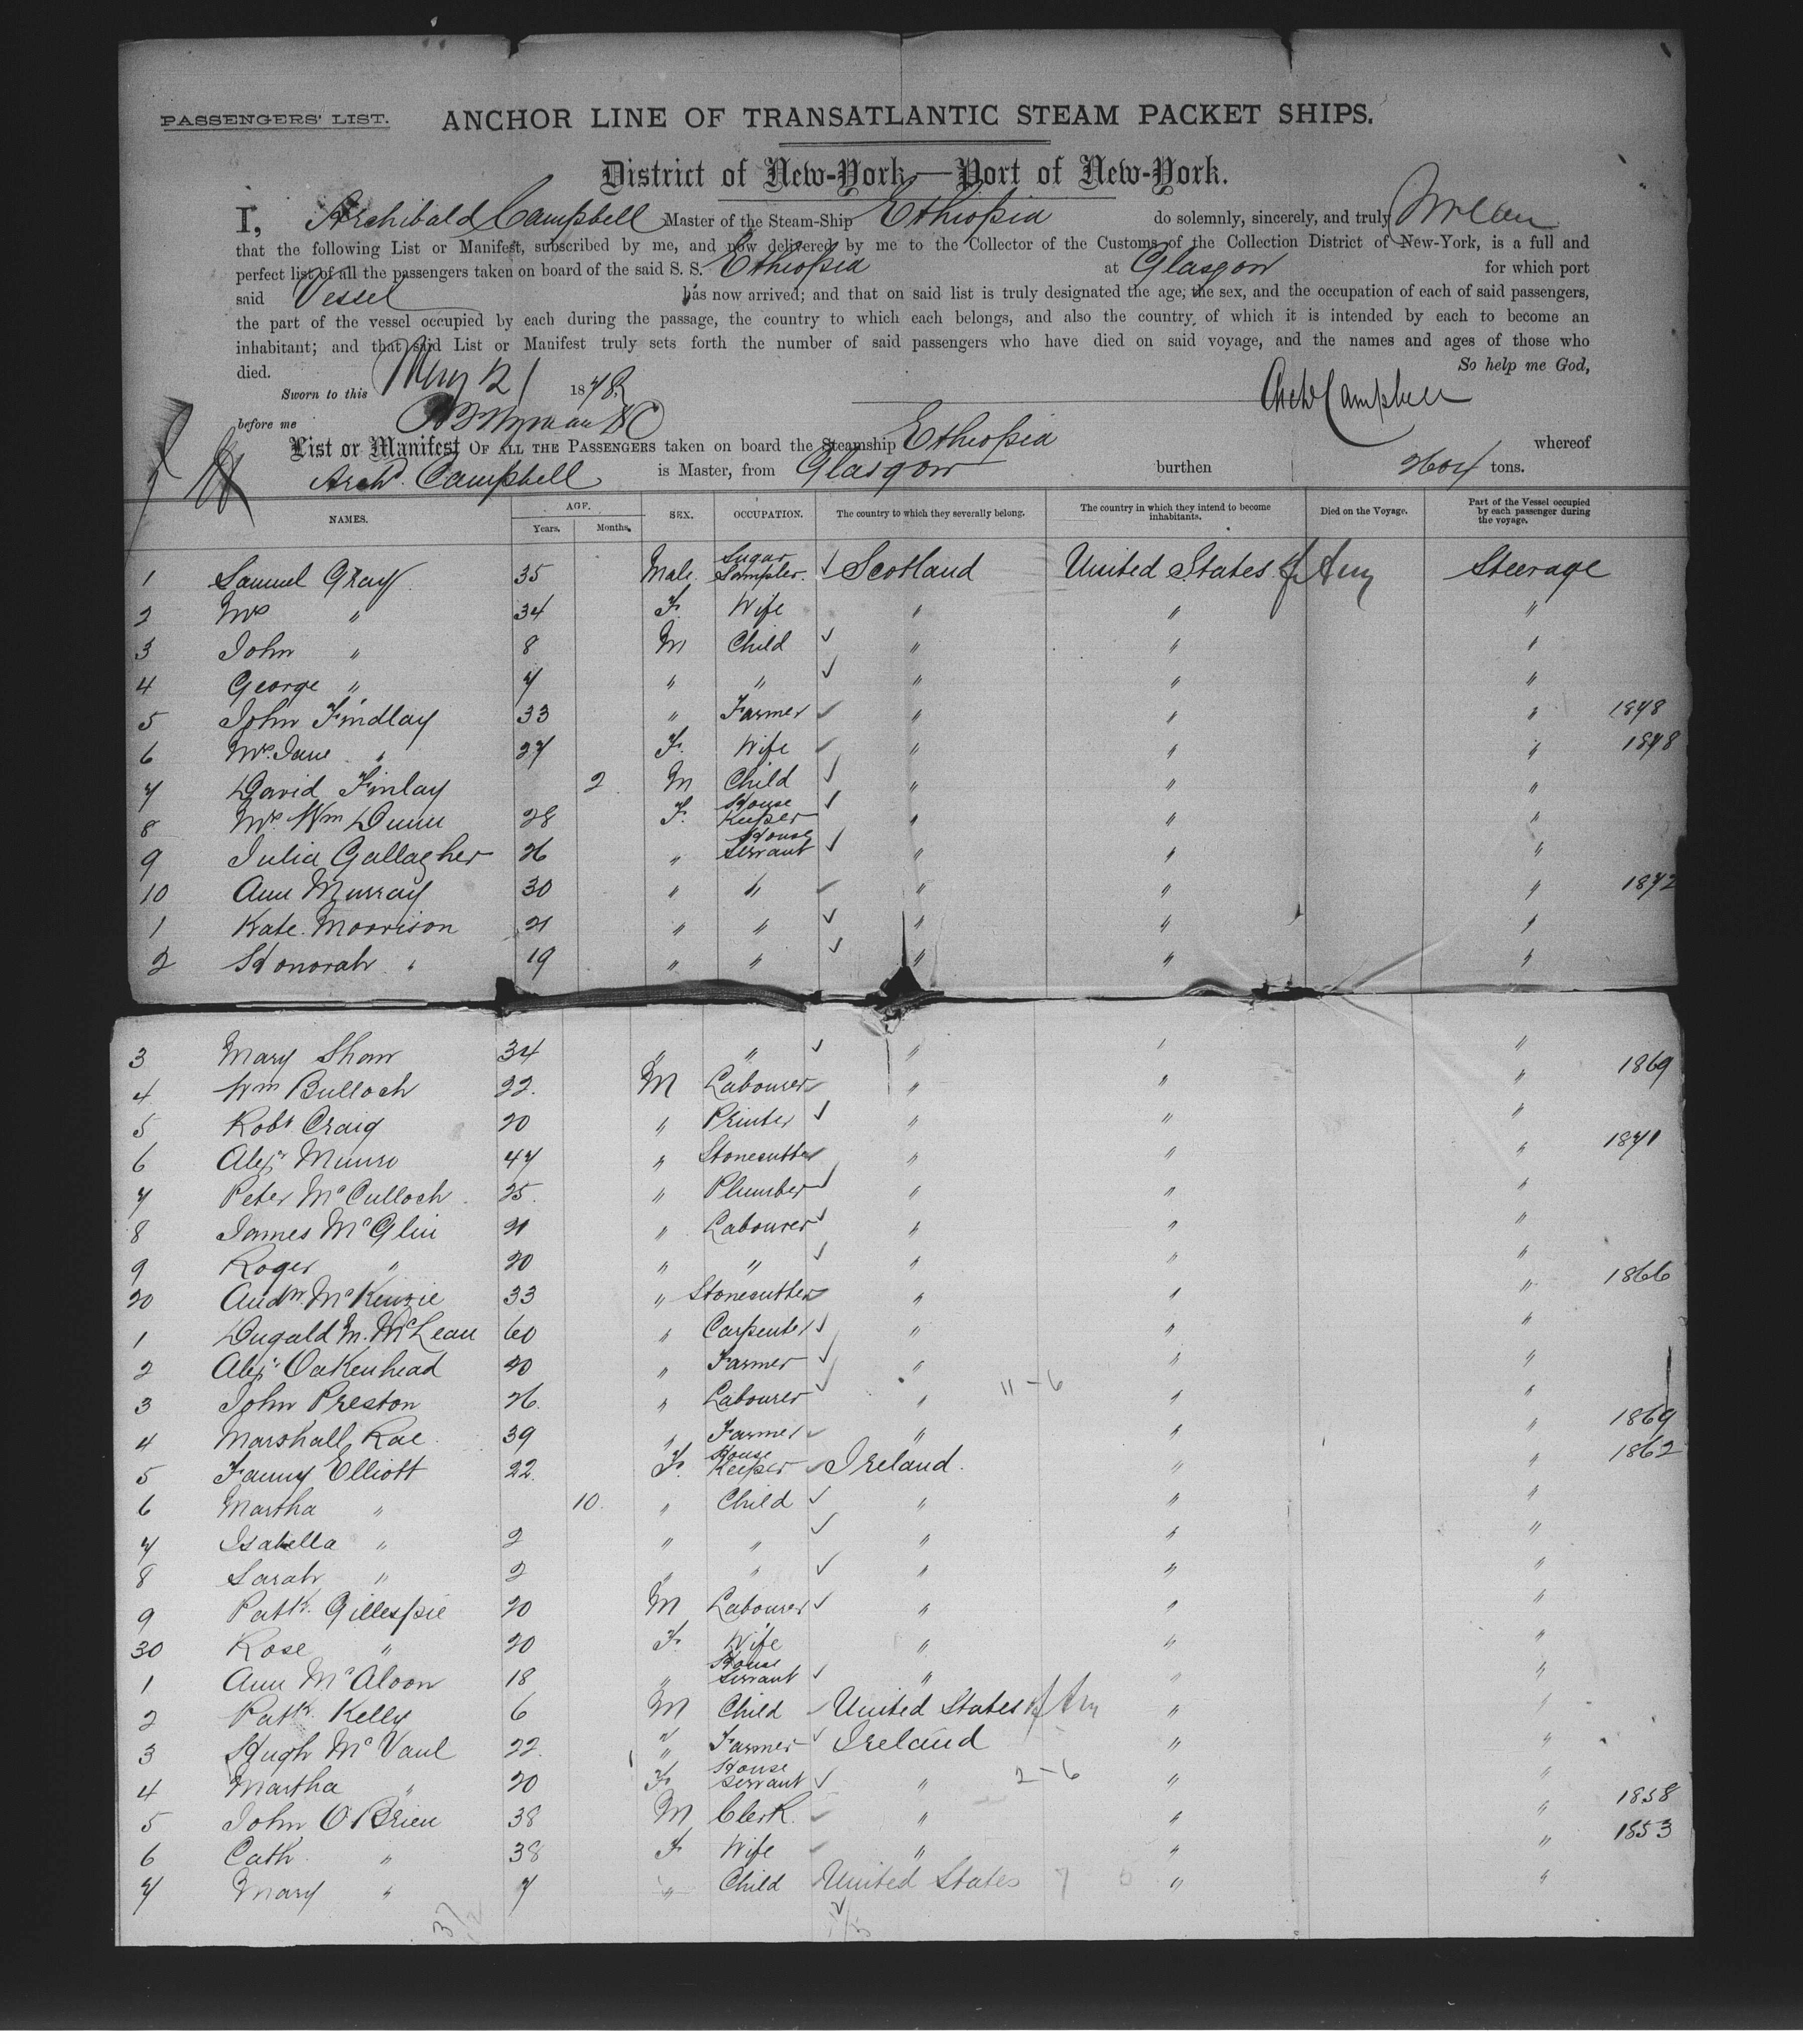 PASSENGERS' LIST. ANCHOR LINE OF TRANSATLANTIC STEAM PACKET SHIPS.
District of New-York—Port of New-York.
I, Archibald Campbell Master of the Steam-Ship Ethiopia do solemnly, sincerely, and truly
that the following List or Manifest, subscribed by me, and now delivered by me to the Collector of the Customs of the Collection District of New-York, is a full and
perfect list of all the passengers taken on board of the said S. S. Ethiopia at Glasgow for which port
said Vessel has now arrived; and that on said list is truly designated the age, the sex, and the occupation of each of said passengers,
the part of the vessel occupied by each during the passage, the country to which each belongs, and also the country of which it is intended by each to become an
inhabitant; and that said List or Manifest truly sets forth the number of said passengers who have died on said voyage, and the names and ages of those who
died. So help me God,
Sworn to this 1878 Archd Campbell
before me
List or Manifest OF ALL THE PASSENGERS taken on board the Steamship Ethiopia whereof
Archd. Campbell is Master, from Glasgow burthen 2604 tons.
NAMES. AGE. Years. Months. SEX. OCCUPATION. The country to which they severally belong. The country in which they intend to become inhabitants. Died on the Voyage. Part of the Vessel occupied by each passenger during the voyage.
1 Samuel Gray 35 Male. Sugar Sampler. Scotland United States of Am Steerage
2 Mrs " 34 F. Wife " " "
3 John " 8 M Child " " "
4 George " 7 " " " " "
5 John Findlay 33 " Farmer " " " 1878
6 Mrs. Jane " 27 F. Wife " " " 1878
7 David Finlay 2 M Child " " "
8 Mrs. Wm Dunn 28 F. House Keeper " " "
9 Julia Gallagher 26 " House Servant " " "
10 Ann Murray 30 " " " " " 1872
1 Kate Morrison 21 " " " " "
2 Honorah " 19 " " " " "
3 Mary Shaw 34 " " " " "
4 Wm Bulloch 22. M Labourer " " " 1869
5 Robt Craig 20 " Printer " " "
6 Alexr Munro 47 " Stonecutter " " " 1871
7 Peter McCulloch 25. " Plumber " " "
8 James McGlin 21 " Labourer " " "
9 Roger " 20 " " " " "
20 Andw. McKenzie 33 " Stonecutter " " " 1866
1 Dugald M. McLean 60 " Carpenter " " "
2 Alexr Oakenhead 20 " Farmer " " "
3 John Preston 26. " Labourer " 11-6 " "
4 Marshall Rae 39 " Farmer " " " 1869
5 Fanny Elliott 22. F. House Keeper Ireland. " " 1862
6 Martha " 10. " Child " " "
7 Isabella " 2 " " " " "
8 Sarah " 2 " " " " "
9 Patk. Gillespie 20 M Labourer " " "
30 Rose " 20 F. Wife " " "
1 Ann McAloon 18 " House Servant " " "
2 Patk. Kelly 6 M Child United States of Am " "
3 Hugh McVaul 22. " Farmer Ireland " "
4 Martha " 20 F. House Servant " 2-6 " "
5 John O'Brien 38 M Clerk. " " " 1858
6 Cath " 38 F. Wife " " " 1853
7 Mary " 7 " Child United States " "